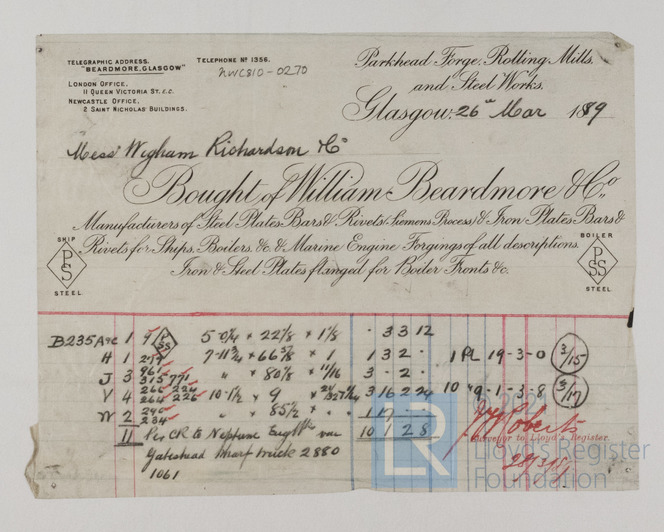 TELEGRAPHIC ADDRESS.
"BEARDMORE, GLASGOW"
TELEPHONE No 1356.
NWC810-0270
LONDON OFFICE,
11 QUEEN VICTORIA ST. E.C.
NEWCASTLE OFFICE,
2 SAINT NICHOLAS' BUILDINGS.
Parkhead Forge, Rolling Mills,
and Steel Works.
Glasgow, 26th Mar 1889
Messrs Wigham Richardson & Co
Bought of William Beardmore & Co.,
Manufacturers of Steel Plates, Bars & Rivets (Siemens Process) & Iron Plates, Bars &
Rivets for Ships, Boilers, &c. & Marine Engine Forgings of all descriptions.
Iron & Steel Plates flanged for Boiler Fronts &c.
SHIP
PSS
STEEL
BOILER
PSS
STEEL.
B235A 1 5-0 1/4 × 22 1/8 × 1 1/8 · 3 3 12
H 1 7-11 3/4 × 66 3/8 × 1 1 3 2 · 1 PL 19-3-0 3/15
J 3 961 315 771 " × 80 5/8 × 11/16 3 · 2 ·
V 4 266 224 264 226 10-1 1/2 × 9 3 16 2 24 10 " 9-1-3-8 3/17
W 2 234 " × 85 1/2 × 1 17
11 Per CR to Neptune 10 1 2 8
Gateshead Wharf truck 2880
1061
Roberts
Surveyor to Lloyd's Register.
© 2024
LR
Lloyd's Register
Foundation